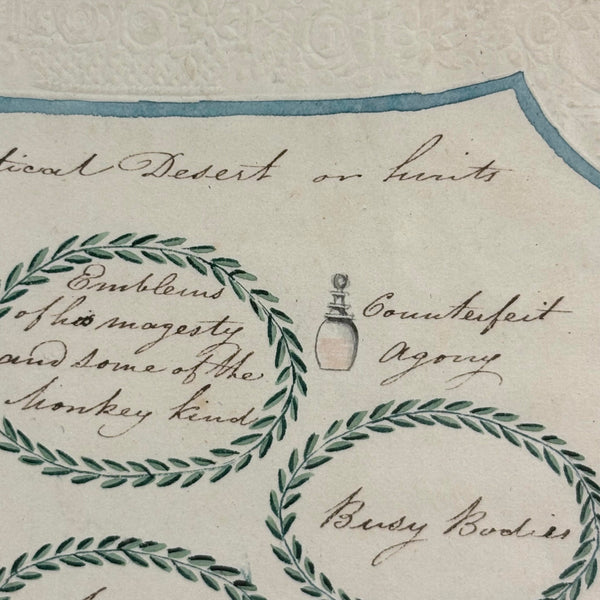 tical Desert or hints
Emblems
of his magesty
and some of the
Monkey kind
Counterfeit
agony
Busy Bodies